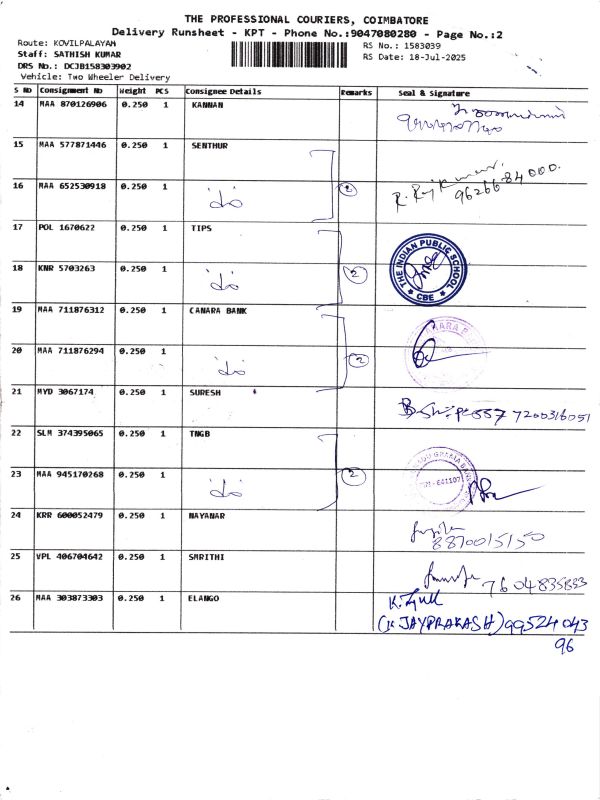 THE PROFESSIONAL COURIERS, COIMBATORE
Delivery Runsheet - KPT - Phone No.:9047080280 - Page No.:2
Route: KOVILPALAYAM
RS No.: 1583039
Staff: SATHISH KUMAR
RS Date: 18-Jul-2025
DRS No.: DCJB158303902
Vehicle: Two Wheeler Delivery
S NO Consignment No Weight PCS Consignee Details Remarks Seal & Signature
14 MAA 870126906 0.250 1 KANNAN
15 MAA 577871446 0.250 1 SENTHUR
16 MAA 652530918 0.250 1 do 2 R. Raj Kumar. 9626684000.
17 POL 1670622 0.250 1 TIPS
THE INDIAN PUBLIC SCHOOL CBE
18 KNR 5703263 0.250 1 do 2
19 MAA 711876312 0.250 1 CANARA BANK
20 MAA 711876294 0.250 1 do 2
21 MYD 3067174 0.250 1 SURESH 7200316051
22 SLM 374395065 0.250 1 TNGB
23 MAA 945170268 0.250 1 do 2 641107
24 KRR 600052479 0.250 1 NAYANAR 8870015150
25 VPL 406704642 0.250 1 SMRITHI 7604835893
26 MAA 303873303 0.250 1 ELANGO
(K JAYPRAKASH) 99524043
96